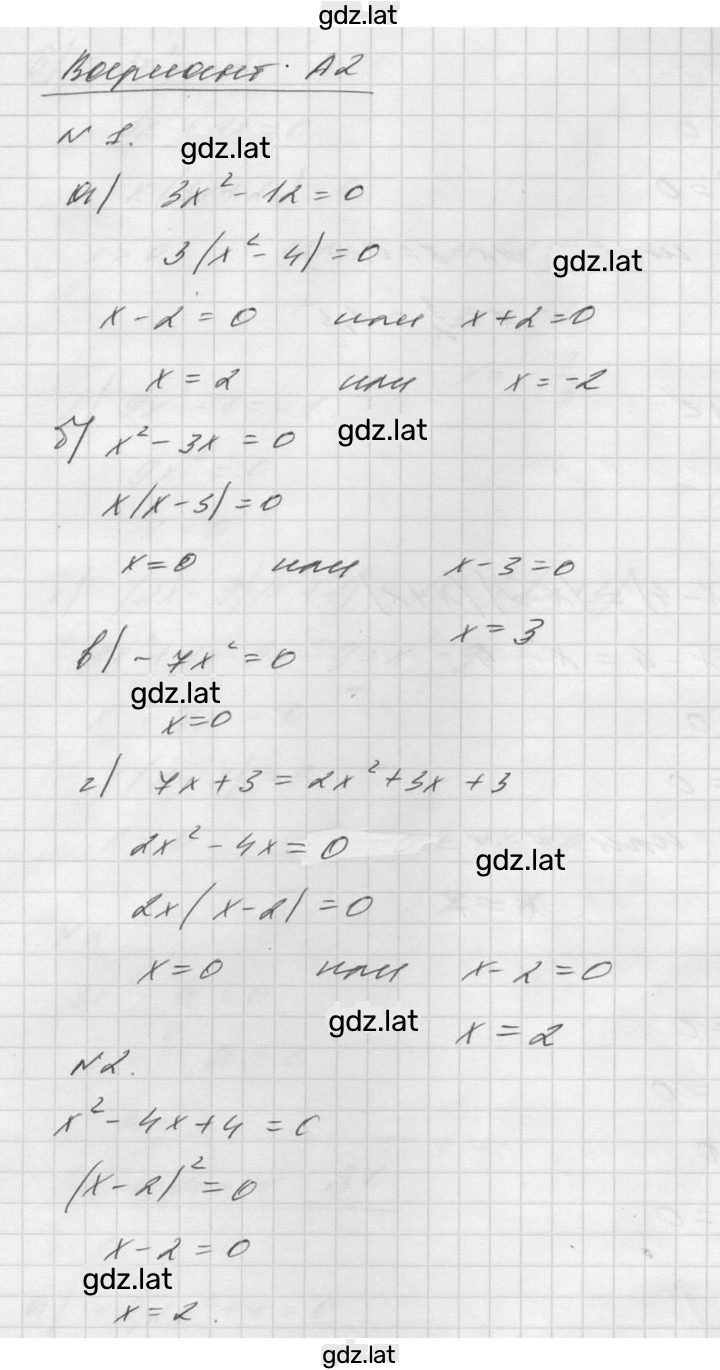 gdz.lat
Вариант А2
N 1. gdz.lat
а) 3x² - 12 = 0
3(x² - 4) = 0 gdz.lat
x - 2 = 0 или x + 2 = 0
x = 2 или x = -2
б) x² - 3x = 0 gdz.lat
x(x - 3) = 0
x = 0 или x - 3 = 0
x = 3
в) - 7x² = 0
gdz.lat
x = 0
г) 7x + 3 = 2x² + 3x + 3
2x² - 4x = 0 gdz.lat
2x(x - 2) = 0
x = 0 или x - 2 = 0
gdz.lat x = 2
N 2.
x² - 4x + 4 = 0
(x - 2)² = 0
x - 2 = 0
gdz.lat
x = 2.
gdz.lat